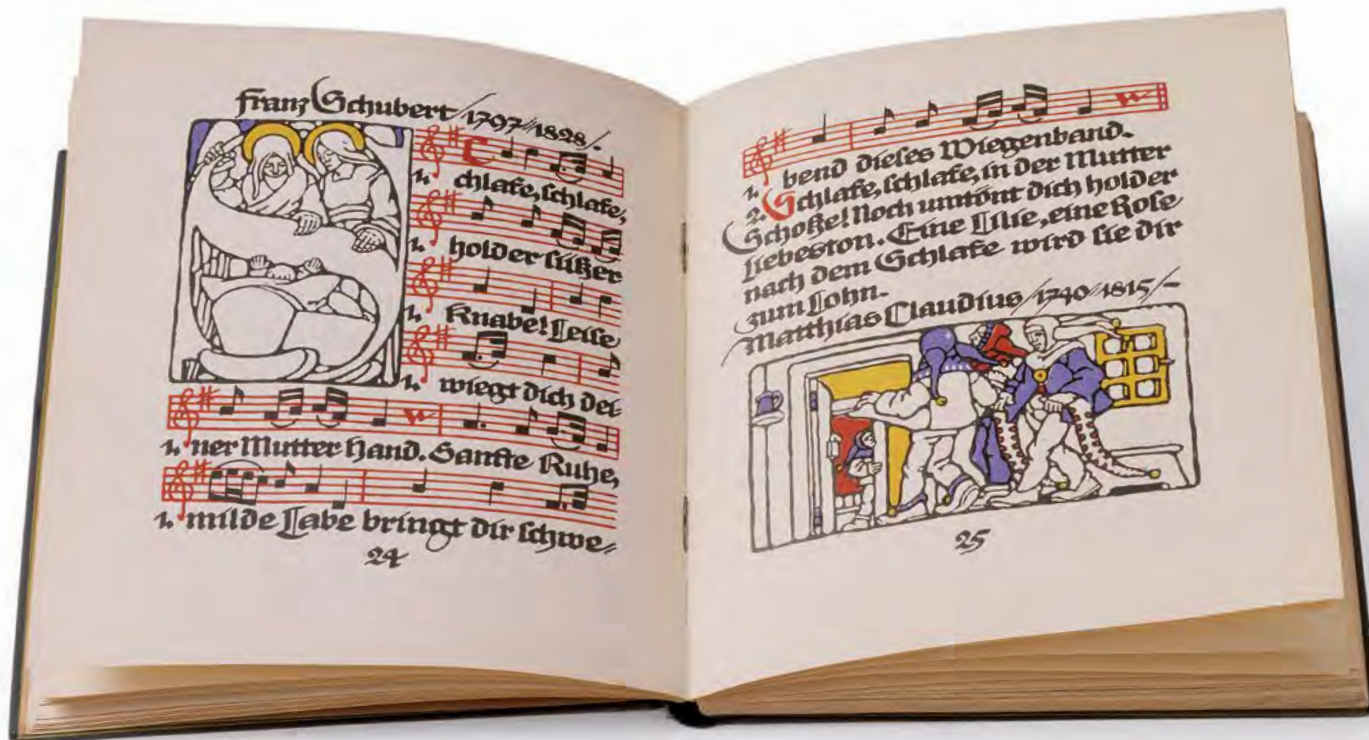 Franz Schubert /1797/1828/.
1. chlafe, ſchlafe,
1. holder ſüßer
1. Knabe! Leiſe
1. wiegt dich dei-
1. ner Mutter Hand. Sanfte Ruhe,
1. milde Labe bringt dir ſchwe-
24
1. bend dieſes Wiegenband.
2. Schlafe, ſchlafe, in der Mutter
Schoße! Noch umtönt dich holder
Liebeston. Eine Lilie, eine Roſe
nach dem Schlafe wird ſie dir
zum Lohn.
Matthias Claudius /1740/1815/-
25